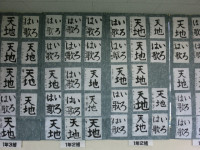 いろは歌
天地
いろは歌
天地
いろは歌
天地
いろは歌
天地
いろは歌
天地
いろは歌
天地
いろは歌
天地
いろは歌
天地
いろは歌
天地
いろは歌
天地
いろは歌
天地
いろは歌
天地
いろは歌
天地
いろは歌
天地
いろは歌
天地
いろは歌
天地
いろは歌
天地
天地
いろは歌
天地
天地
いろは歌
天地
1年3組
1年2組
1年2組